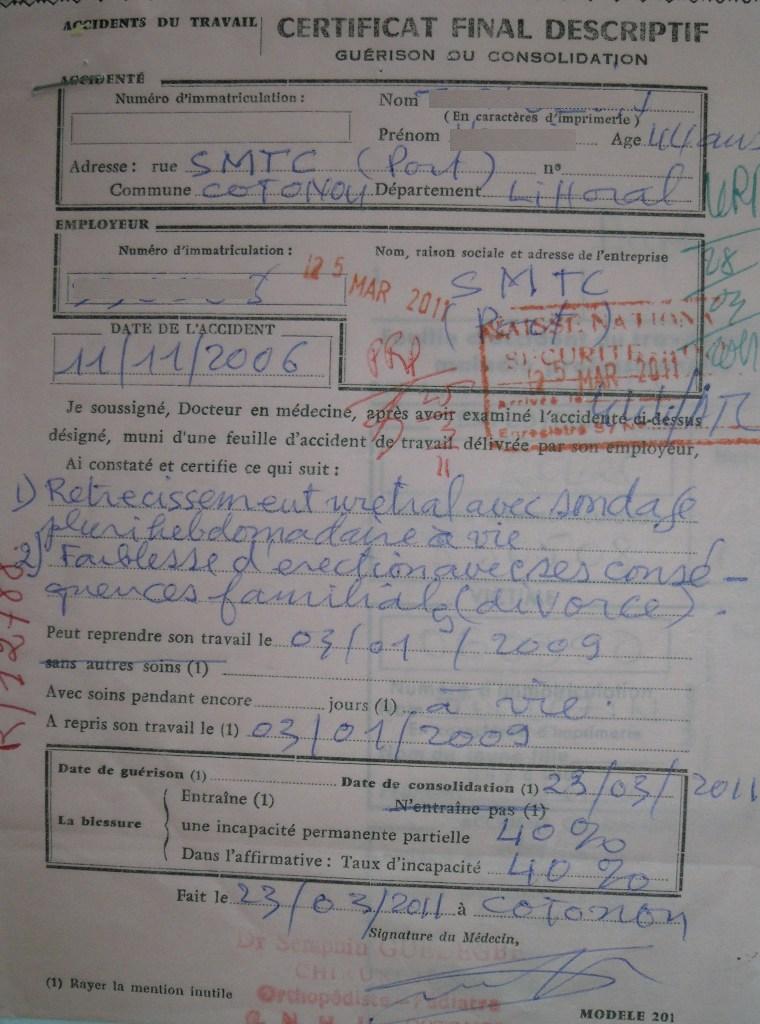 ACCIDENTS DU TRAVAIL
CERTIFICAT FINAL DESCRIPTIF
GUÉRISON OU CONSOLIDATION
ACCIDENTÉ
Numéro d'immatriculation :
Nom
(En caractères d'imprimerie)
Prénom Age 44 ans
Adresse : rue SMTC (Port) nº
Commune COTONOU Département Littoral
EMPLOYEUR
Numéro d'immatriculation :
Nom, raison sociale et adresse de l'entreprise
SMTC
(Port)
25 MAR 2011
SECURITE
25 MAR 2011
PRP
28
03
2011
DATE DE L'ACCIDENT
11/11/2006
Je soussigné, Docteur en médecine, après avoir examiné l'accidenté ci-dessus
désigné, muni d'une feuille d'accident de travail délivrée par son employeur,
Ai constaté et certifie ce qui suit :
1) Retrecissement uretral avec sondage
plurihebdomadaire à vie
2) Faiblesse d'erection avec ses consé-
quences familiales (divorce).
Peut reprendre son travail le 03/01/2009
sans autres soins (1)
Avec soins pendant encore jours (1) à vie.
A repris son travail le (1) 03/01/2009
Date de guérison (1) Date de consolidation (1) 23/03/2011
La blessure
Entraîne (1) N'entraîne pas (1)
une incapacité permanente partielle 40 %
Dans l'affirmative : Taux d'incapacité 40 %
Fait le 23/03/2011 à COTONOU
Signature du Médecin,
Dr Seraphin
Orthopédiste - Pédiatre
(1) Rayer la mention inutile
MODELE 201